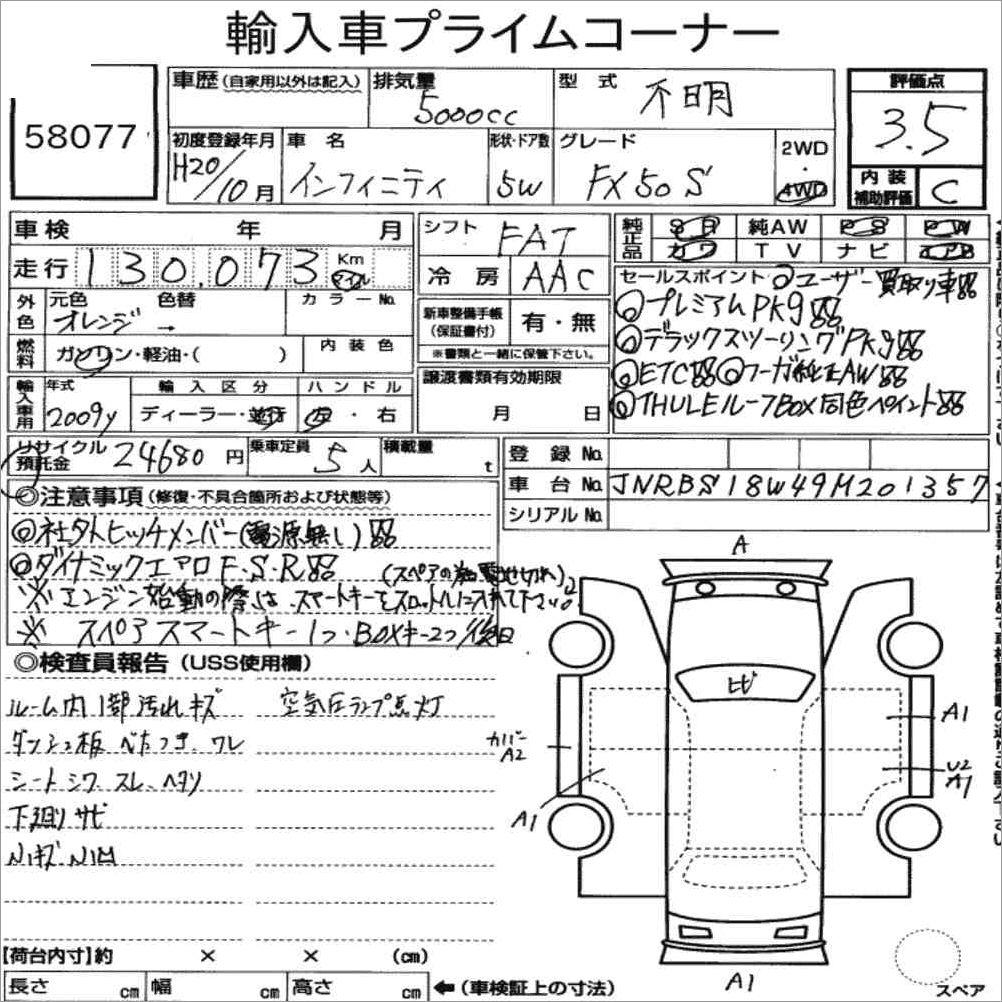 輸入車プライムコーナー
58077
車歴(自家用以外は記入)
排気量 5000cc
型式 不明
評価点 3.5
初度登録年月 H20/10月
車名 インフィニティ
形状・ドア数 5W
グレード FX50 S
2WD・4WD
内装補助評価 C
車検 年 月
走行 130,073 Km マイル
シフト FAT
冷房 AAC
純正品 SR 純AW PS PW
カワ TV ナビ エアB
外色 元色 オレンジ 色替 → カラーNo.
燃料 ガソリン・軽油・( ) 内装色
新車整備手帳(保証書付) 有・無
※書類と一緒に保管下さい。
輸入車用 年式 2009y 輸入区分 ディーラー・並行 ハンドル 左・右
譲渡書類有効期限
月 日
セールスポイント ◎ユーザー買取り車
◎プレミアムPKg
◎デラックスツーリングPKg
◎ETC ◎フーガ純正AW
◎THULEルーフBOX同色ペイント
リサイクル預託金 24680円 乗車定員 5人 積載量 t
登録No.
車台No. JNRBS18W49M201357
シリアルNo.
◎注意事項(修復・不具合箇所および状態等)
◎社外ヒッチメンバー(電源無し)
◎ダイナミックエアロF・S・R
(スペアの為電池切れ)
※ エンジン始動の際は スマートキーをスロットルに入れて下さい。
※ スペアスマートキー1つ・BOXキー2つ/後日
◎検査員報告(USS使用欄)
ルーム内1部汚れキズ 空気圧ランプ点灯
ダッシュ板 べたつき、ワレ
シートシワ スレ、ヘタリ
下廻りサビ
A
ヒビ
A1
カバーA2
U2
A1
A1
A1
【荷台内寸】約 × × (cm)
長さ cm 幅 cm 高さ cm ←(車検証上の寸法)
スペア